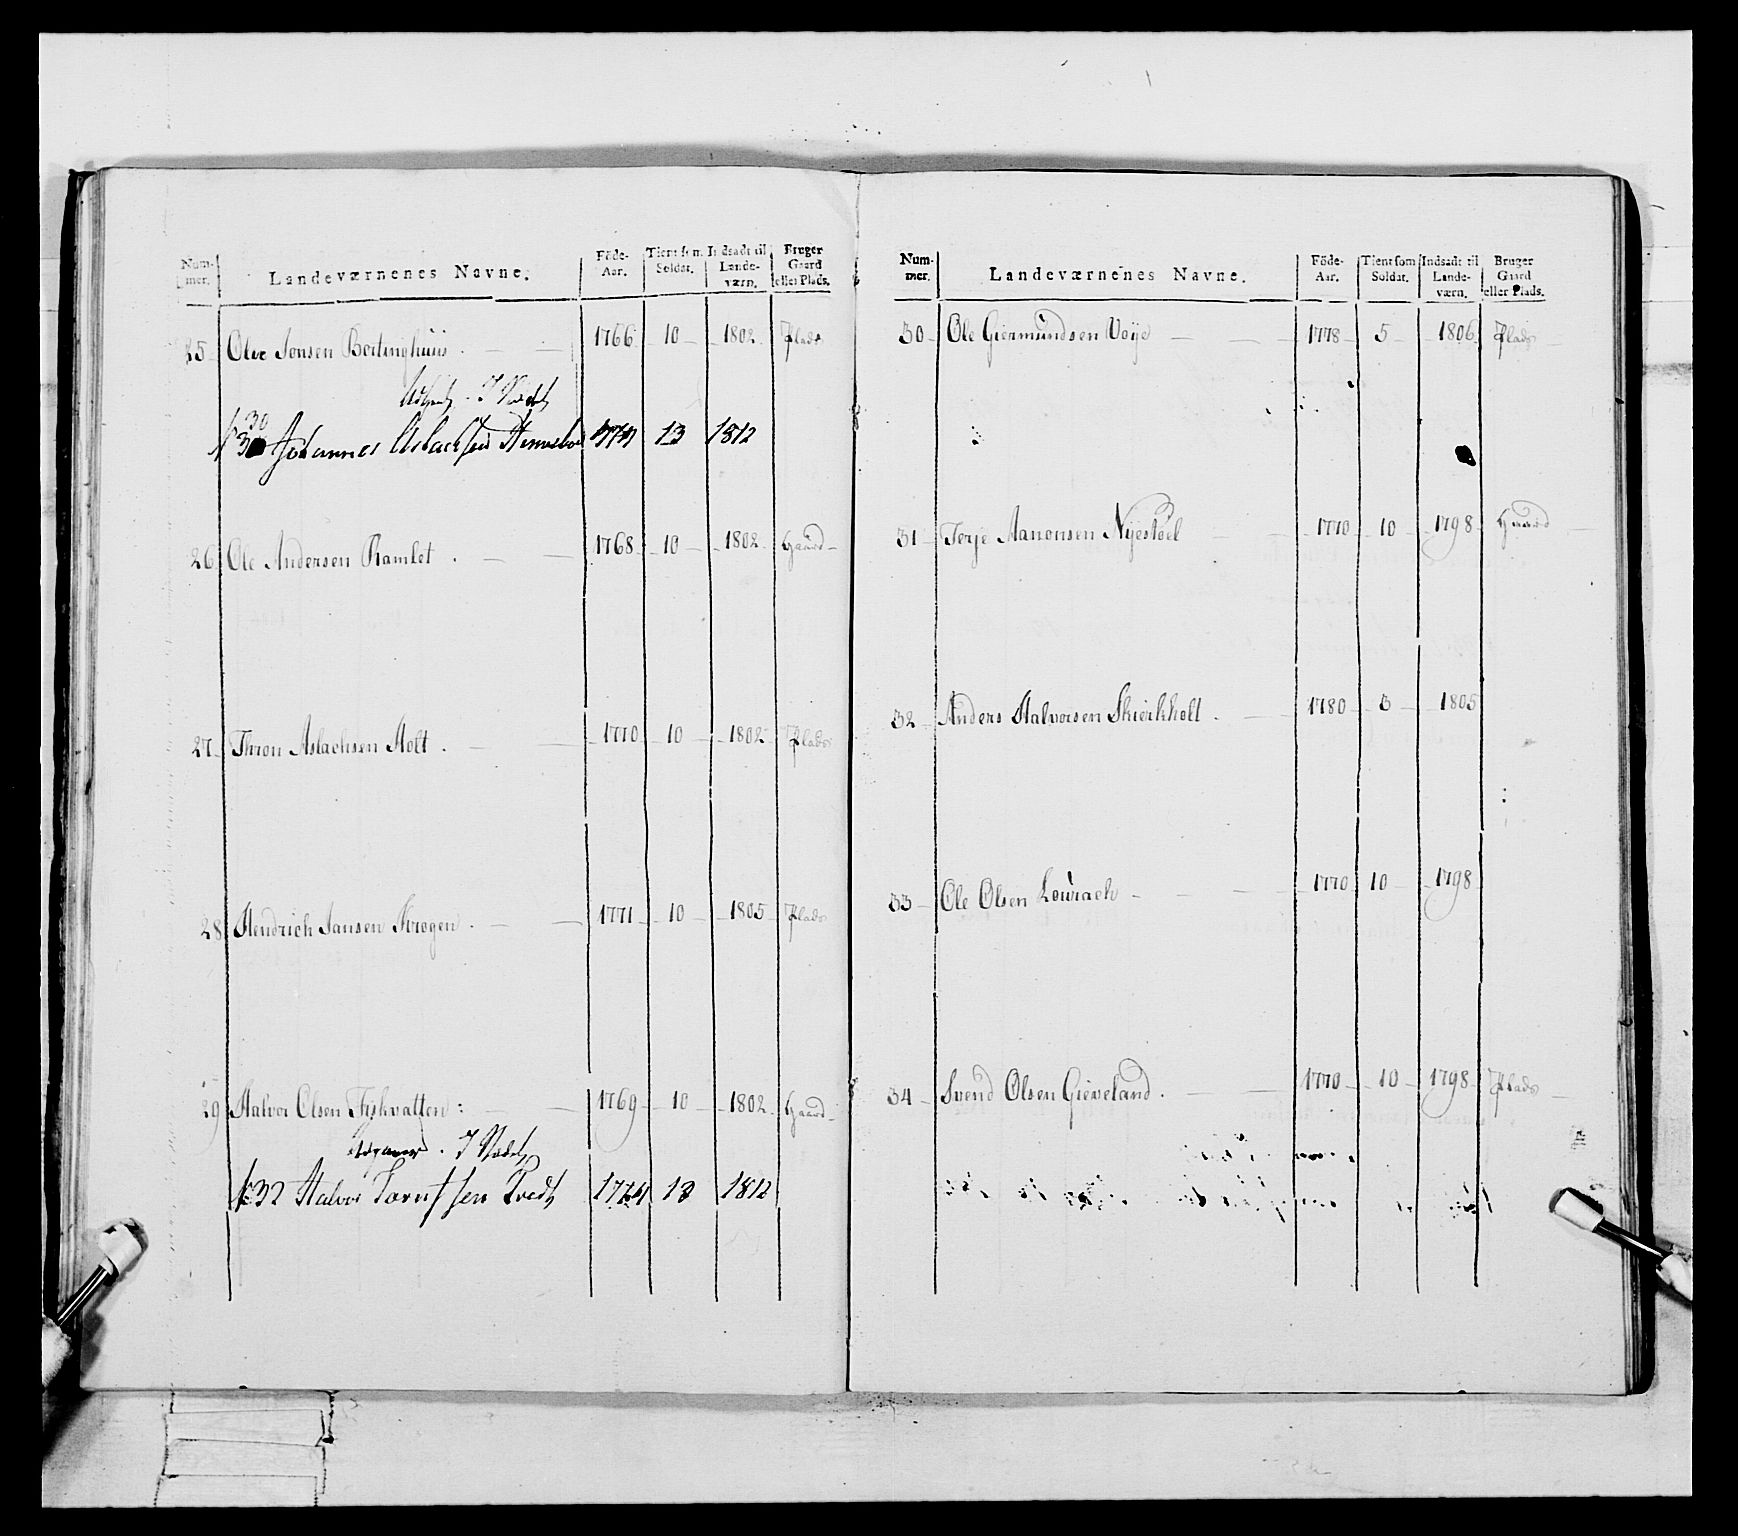 Num-mer. Landeværnenes Navne. Föde-Aar. Tient som Soldat. Indsadt til Lande-værn. Bruger Gaard eller Plads.
25 Olve Jensen 1766 10 1802 Plads
J Stædet
30 Johannes Aslachsen 13 1812
26 Ole Andersen Ramlet 1768 10 1802 Gaard
27 Thron Aslachsen Holt 1770 10 1802 Plads
28 Hendrich Jansen Krogen 1771 10 1805 Plads
29 Halvor Olsen Fishvatten 1769 10 1802 Gaard
J Stædet
32 Halvor 1774 13 1812
Num-mer. Landeværnenes Navne. Föde-Aar. Tient som Soldat. Indsadt til Lande-værn. Bruger Gaard eller Plads.
30 Ole Giermundsen Voije 1778 5 1806 Plads
31 Terje Aanonsen Nyestöel 1770 10 1798 Gaard
32 Anders Halvorsen Skierkholt 1780 3 1805
33 Ole Olsen 1770 10 1798
34 Svend Olsen Gieveland 1770 10 1798 Plads